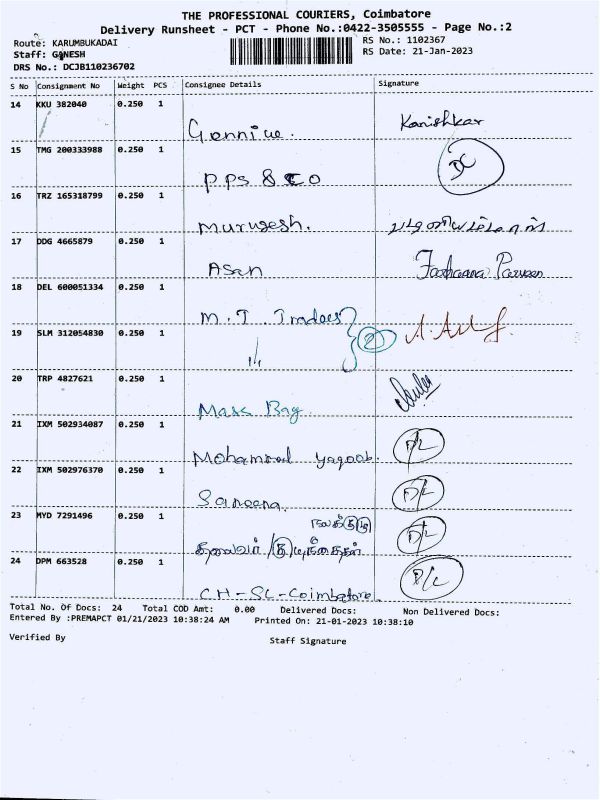 THE PROFESSIONAL COURIERS, Coimbatore
Delivery Runsheet - PCT - Phone No.:0422-3505555 - Page No.:2
Route: KARUMBUKADAI
RS No.: 1102367
Staff: GANESH
RS Date: 21-Jan-2023
DRS No.: DCJB110236702
S No Consignment No Weight PCS Consignee Details Signature
14 KKU 382040 0.250 1
Kanishkar
15 TMG 200333988 0.250 1
DC
PPS & CO
16 TRZ 165318799 0.250 1
Murugesh.
17 DDG 4665879 0.250 1
Asan Parveen
18 DEL 600051334 0.250 1
M.T. Tradoes
19 SLM 312054830 0.250 1
2
20 TRP 4827621 0.250 1
Mass Bag.
21 IXM 502934087 0.250 1
D/L
Mohammed yaqoob.
22 IXM 502976370 0.250 1
D/L
Sareena.
23 MYD 7291496 0.250 1
D/L
24 DPM 663528 0.250 1
D/L
CH-SL-Coimbatore.
Total No. Of Docs: 24 Total COD Amt: 0.00 Delivered Docs: Non Delivered Docs:
Entered By :PREMAPCT 01/21/2023 10:38:24 AM Printed On: 21-01-2023 10:38:10
Verified By Staff Signature